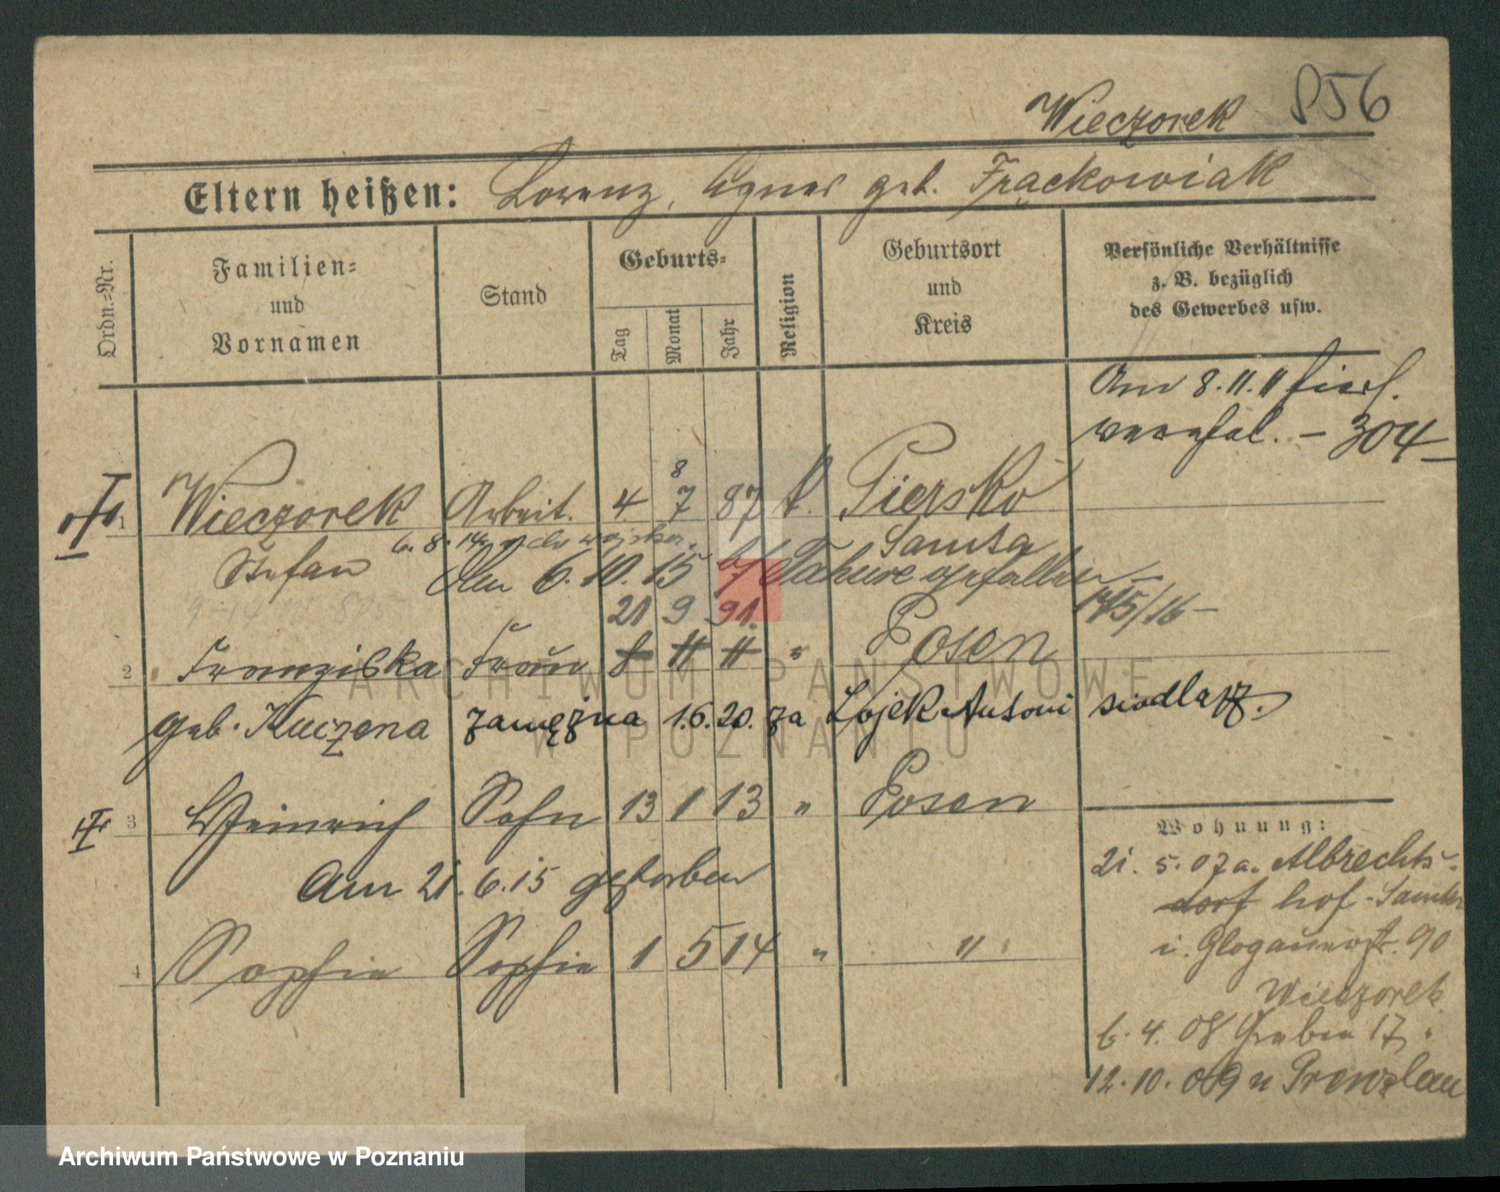 Wieczorek 856
Eltern heißen: Lorenz, Agnes geb. Frąckowiak
Ordn.=Nr.
Familien=
und
Vornamen
Stand
Geburts=
Tag
Monat
Jahr
Religion
Geburtsort
und
Kreis
Persönliche Verhältnisse
z. B. bezüglich
des Gewerbes usw.
Am 8. 11. 11
304
8
1 Wieczorek Arbeit. 4. 7 87 k. Piersko
6. 8. 14 do wojska. Samta
Stefan Am 6. 10. 15 b/ Tahure gefallen
21 9 91. 1415/16
2 Franziska Frau 8 11 11 " Posen
geb. Kuczena zamężna 1.6.20. za Łojek Antoni siodlarz.
3 Heinrich Sohn 13 1 13 " Posen
Am 21. 6. 15 gestorben
4 Sophie Sophie 1 5 14 " "
Wohnung:
21. 5. 07 a. Albrechts-
dorf hof - Samter
i. Glogauerst. 90
Wieczorek
6. 4. 08 Graben 17
12. 10. 09 n Prenzlau
ARCHIWUM PAŃSTWOWE
W POZNANIU
Archiwum Państwowe w Poznaniu